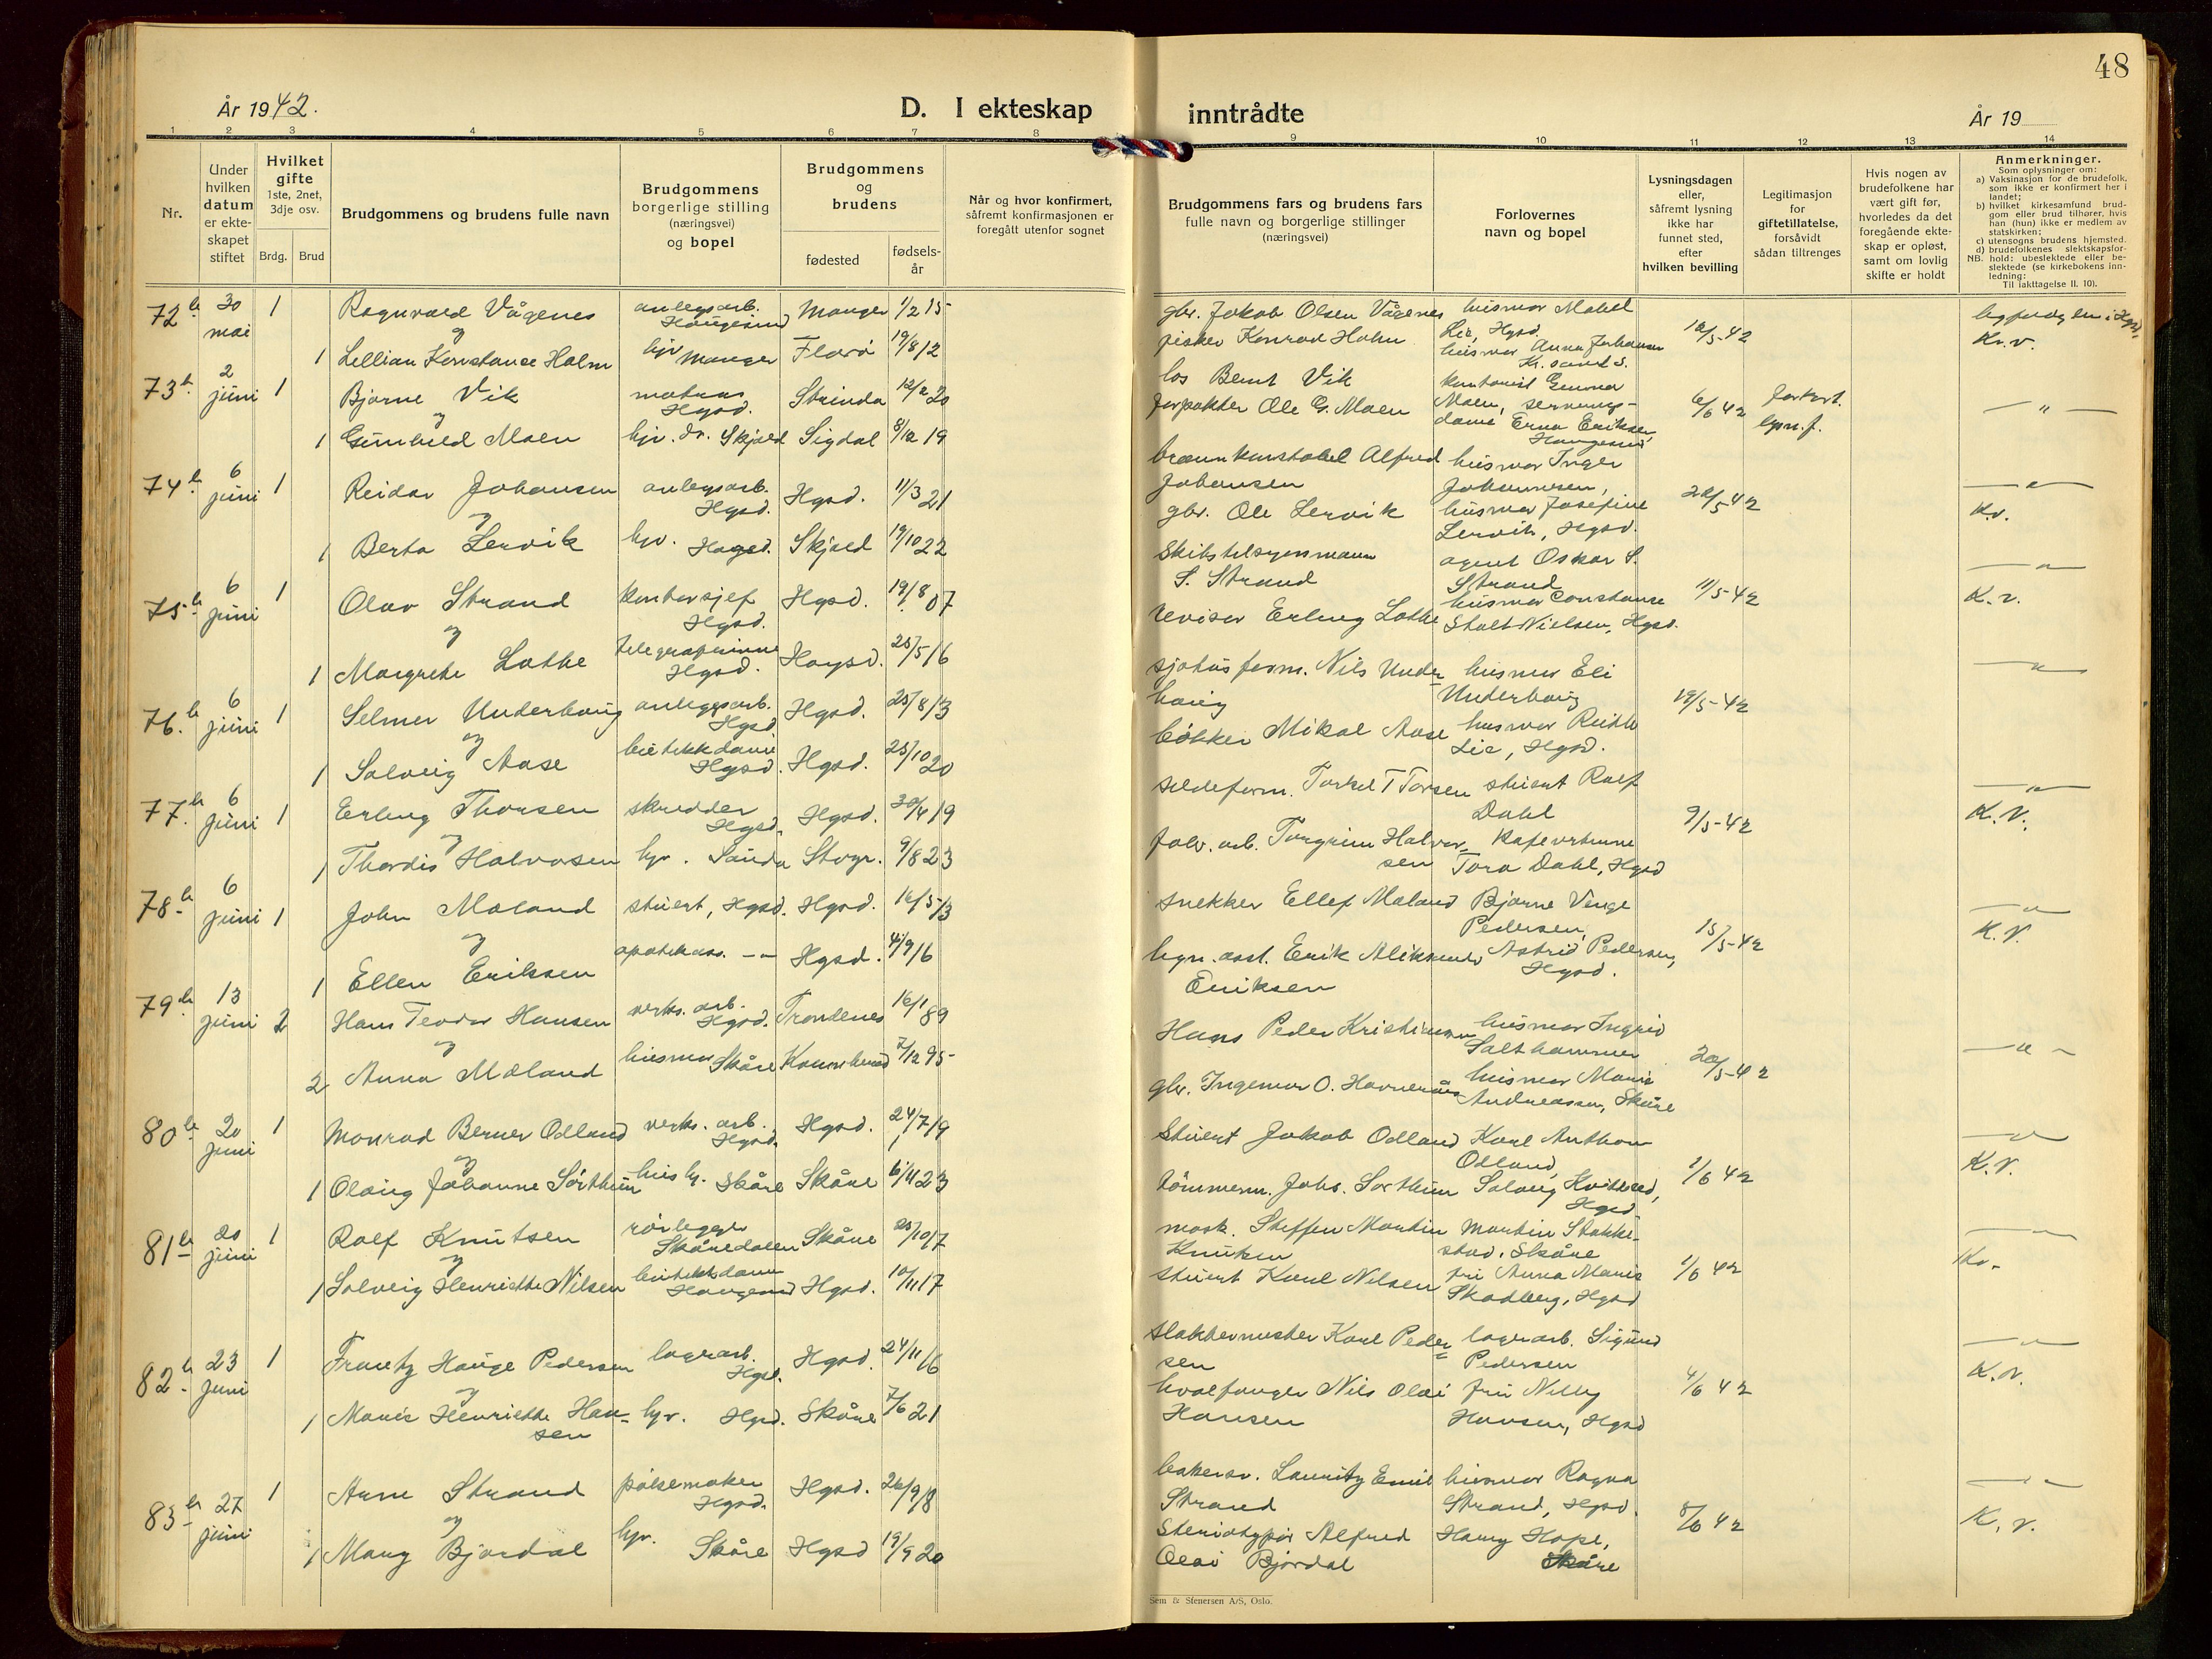 48
År 1942.
D. I ekteskap inntrådte
År 19
1 2 3 4 5 6 7 8 9 10 11 12 13 14
Nr.
Under
hvilken
datum
er ekte-
skapet
stiftet
Hvilket
gifte
1ste, 2net,
3dje osv.
Brdg. Brud
Brudgommens og brudens fulle navn
Brudgommens
borgerlige stilling
(næringsvei)
og bopel
Brudgommens
og
brudens
fødested
fødsels-
år
Når og hvor konfirmert,
såfremt konfirmasjonen er
foregått utenfor sognet
Brudgommens fars og brudens fars
fulle navn og borgerlige stillinger
(næringsvei)
Forlovernes
navn og bopel
Lysningsdagen
eller,
såfremt lysning
ikke har
funnet sted,
efter
hvilken bevilling
Legitimasjon
for
giftetillatelse,
forsåvidt
sådan tiltrenges
Hvis nogen av
brudefolkene har
vært gift før,
hvorledes da det
foregående ekte-
skap er opløst,
samt om lovlig
skifte er holdt
Anmerkninger.
Som oplysninger om:
a) Vaksinasjon for de brudefolk,
som ikke er konfirmert her i
landet;
b) hvilket kirkesamfund brud-
gom eller brud tilhører, hvis
han (hun) ikke er medlem av
statskirken;
c) utensogns brudens hjemsted.
d) brudefolkenes slektskapsfor-
NB. hold: ubeslektede eller be-
slektede (se kirkebokens inn-
ledning:
Til iakttagelse II. 10).
72 30 mai 1 Ragnvald Vågenes anlegsarb. Haugesund Manger 1/2 15
gbr. Jakob Olsen Vågenes husmor Mabel
og
1 Lellian Konstanse Holm hjv Manger Florø 19/8 12
fisker Konrad Holm Lie, Hgsd.
husmor Anna Johansen
Kr. sand S.
Kr. v.
73 2 juni 1 Bjarne Vik matros Hgsd. Strinda 12/2 20
los Bernt Vik
og
1 Gunhild Moen hjv. Skjold Sigdal 8/12 19
forpakter Ole G. Moen Moen, serverings-
dame Erna Eriksen,
Haugesund
6/6 42
74 6 juni 1 Reidar Johansen anlegsarb. Hgsd. Hgsd. 11/3 21
brannkonstabel Alfred husmor Inger
Johansen Johannesen,
og
1 Berta Lervik hjv. Hagsd. Skjold 19/10 22
gbr. Ole Lervik husmor Josefine
Lervik, Hgsd.
22/5 42
K.v.
75 6 juni 1 Olav Strand kontorsjef Hgsd. Hgsd. 19/8 07
Skibstilsynsmann agent Oskar S.
S. Strand Strand
og
1 Margrethe Lothe telegrafistinne Hgsd. Haugsd. 25/5 16
revisor Erling Lothe husmor Constanse
Stolt-Nielsen, Hgsd.
11/5-42
K. v.
76. 6 juni 1 Selmer Underhaug anleggsarb. Hgsd Hgsd. 25/8 13
sjøhusform. Nils Under- husmor Eli
haug Underhaug
og
1 Solveig Aase butikkdame Hgsd. Hgsd. 25/10 20
bøkker Mikal Aase husmor Reidth
Lie, Hgsd.
19/5-42
77. 6 juni 1 Erling Thorsen skredder Hgsd. Hgsd. 30/4 19
sildeform. Torkel T Torsen stuert Rolf
Dahl
og
1 Thordis Halvorsen hjv. Sauda Stvgr. 9/8 23
fabr. arb. Torgrim Halvor- kafevertinne
sen Tora Dahl, Hgsd
9/5-42
K. V.
78 6 juni 1 John Mæland stuert, Hgsd. Hgsd. 16/5 13
snekker Ellef Mæland Bjarne Venge
Pedersen,
og
1 Ellen Eriksen apotekass. Hgsd. 4/9 16
Erik Astrid Pedersen,
Eriksen Hgsd.
15/5-42
K. V.
79 13 juni 2 Hans Teodor Hansen verks. arb. Hgsd. Trondenes 16/1 89
Hans Peder Kristiansen husmor Ingrid
Salthammer
og
2 Anna Mæland husmor Skåre 7/12 95
gbr. Ingemar O. husmor Marie
Andreassen, Skåre
20/5-42
80 20 juni 1 Monrad Berner Odland verks. arb. Hgsd. Hgsd. 24/7 19
Stuert Jakob Odland Karl Anthon
Odland,
og
1 Olaug Johanne Sørthun hush. Skåre Skåre 6/11 23
tømmerm. Johs. Sørthun Solveig
Hgsd
1/6 42
K. V.
81 20 juni 1 Rolf Knutsen rørlegger Skåredalen Skåre 25/10 17
mask. Steffen Martin Martin Stakke-
Knutsen stad, Skåre
og
1 Solveig Henriette Nilsen butikkdame Haugesund Hgsd. 10/11 17
stuert Karl Nilsen fru Anna Marie
Skadberg, Hgsd
1/6 42
Kv.
82 23 juni 1 Frantz Hauge Pedersen lagerarb. Hgsd. Hgsd. 24/11 16
slaktermester Karl Peder- lagerarb. Sigurd
sen Pedersen
og
1 Marie Henriette Han- hjv. Hgsd. Skåre 7/6 21
sen
hvalfanger Nils Olai fru Nelly
Hansen Hansen, Hgsd
4/6 42
K. V.
83 27 juni 1 Arne Strand pølsemaker Hgsd. Hgsd. 26/9 18
bakersv. Lauritz Emil husmor Ragna
Strand Strand, Hgsd.
og
1 Mary Bjørdal hjv. Skåre Hgsd 19/9 20
Steriotypør Alfred Harry Hope,
Olai Bjørdal Skåre
8/6 42
K. v.
Sem & Stenersen A/S, Oslo.